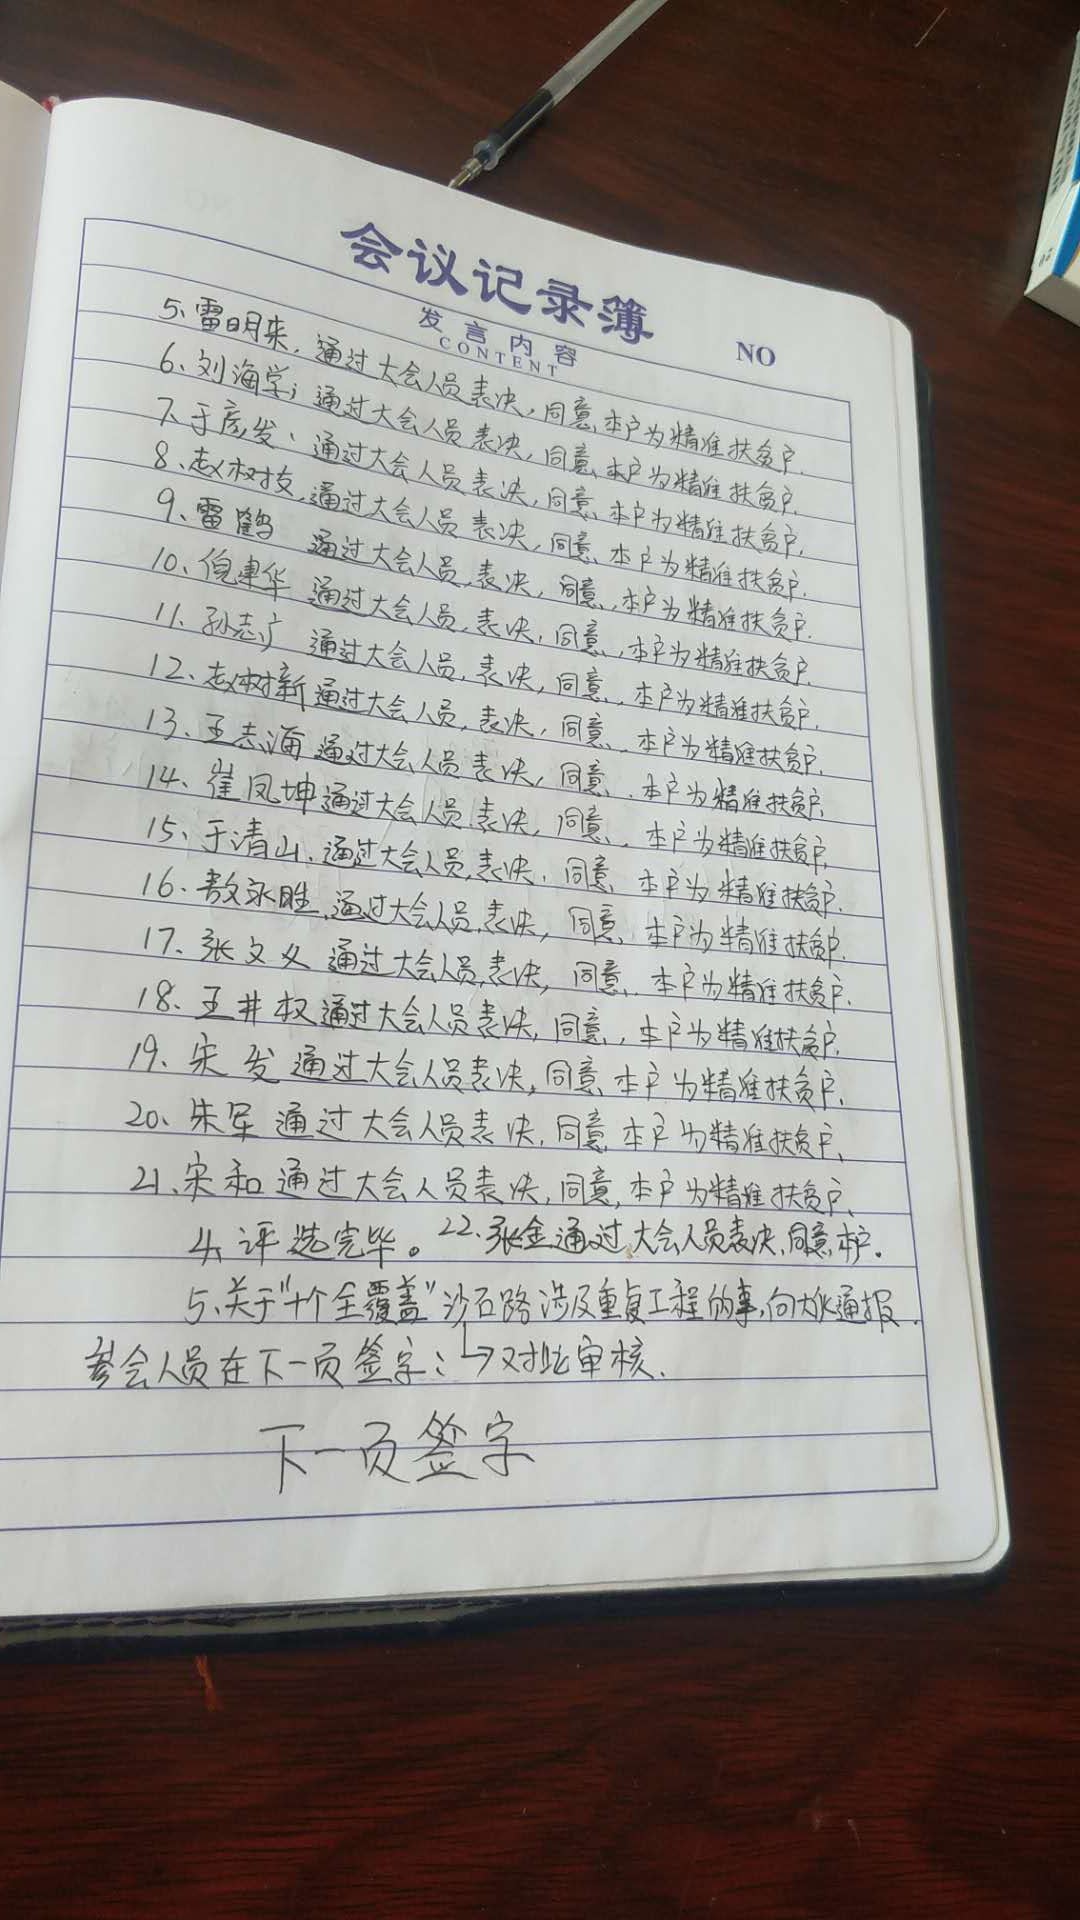 会议记录簿
发言内容
CONTENT
NO
5、雷明来，通过大会人员表决，同意，本户为精准扶贫户.
6、刘海学；通过大会人员表决，同意，本户为精准扶贫户.
7、于彦发、通过大会人员表决，同意，本户为精准扶贫户.
8、赵树枝，通过大会人员表决，同意，本户为精准扶贫户.
9、雷鹤 通过大会人员，表决，同意，本户为精准扶贫户.
10、倪建华 通过大会人员，表决，同意，本户为精准扶贫户.
11、孙志广 通过大会人员，表决，同意，本户为精准扶贫户.
12、赵树新 通过大会人员，表决，同意，本户为精准扶贫户.
13、王志海 通过大会人员表决，同意，本户为精准扶贫户.
14、崔凤坤 通过大会人员表决，同意，本户为精准扶贫户.
15、于清山、通过大会人员，表决，同意，本户为精准扶贫户.
16、敖永胜，通过大会人员，表决，同意，本户为精准扶贫户.
17、张文义 通过大会人员，表决，同意，本户为精准扶贫户.
18、王井权 通过大会人员表决，同意，本户为精准扶贫户.
19、宋发 通过大会人员表决，同意，本户为精准扶贫户.
20、朱军 通过大会人员表决，同意，本户为精准扶贫户、
21、宋和 通过大会人员表决，同意，本户为精准扶贫户、
4、评选完毕。 22、张金通过大会人员表决，同意，本户.
5、关于"十个全覆盖"沙石路涉及重复工程的事，向大伙通报.
参会人员在下一页签字： →对此审核.
下一页签字